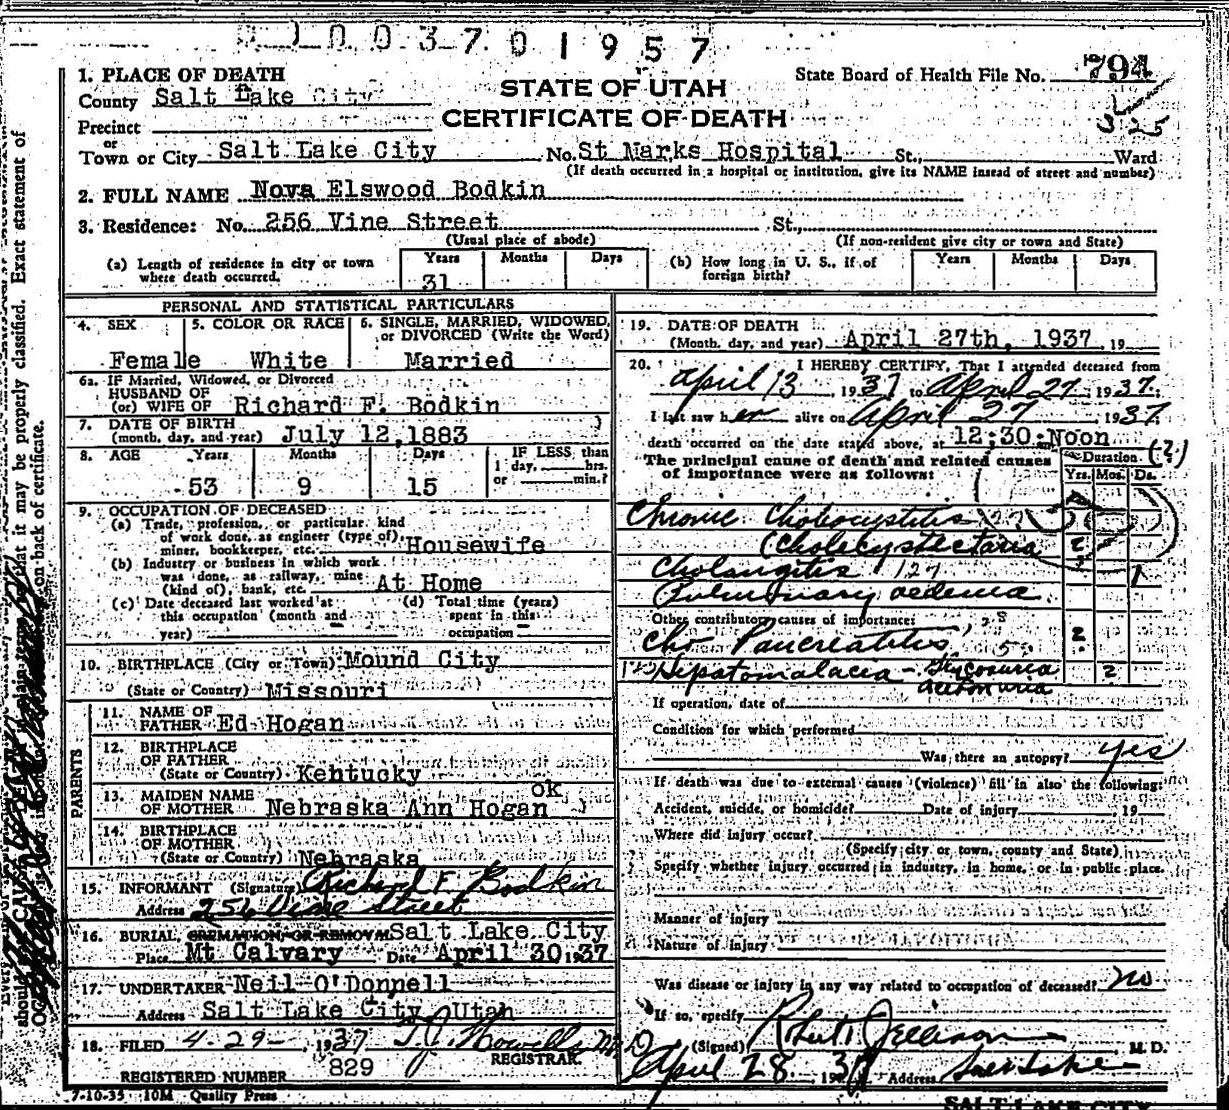 0 0 3 7 0 1 9 5 7
1. PLACE OF DEATH
County Salt Lake City
STATE OF UTAH
CERTIFICATE OF DEATH
State Board of Health File No. 794
3 25
Precinct
or
Town or City Salt Lake City No. St Marks Hospital St., Ward
(If death occurred in a hospital or institution, give its NAME instead of street and number)
2. FULL NAME Nova Elswood Bodkin
3. Residence: No. 256 Vine Street St.,
(Usual place of abode) (If non-resident give city or town and State)
(a) Length of residence in city or town where death occurred. Years 31 Months Days
(b) How long in U. S., if of foreign birth? Years Months Days
PERSONAL AND STATISTICAL PARTICULARS
4. SEX 5. COLOR OR RACE 6. SINGLE, MARRIED, WIDOWED, or DIVORCED (Write the Word)
Female White Married
6a. IF Married, Widowed, or Divorced
HUSBAND OF
(or) WIFE OF Richard F. Bodkin
7. DATE OF BIRTH
(month, day, and year) July 12, 1883
8. AGE Years Months Days IF LESS than
1 day, hrs.
or min.?
53 9 15
9. OCCUPATION OF DECEASED
(a) Trade, profession, or particular kind
of work done, as engineer (type of),
miner, bookkeeper, etc. Housewife
(b) Industry or business in which work
was done, as railway, mine
(kind of), bank, etc. At Home
(c) Date deceased last worked at (d) Total time (years)
this occupation (month and spent in this
year) occupation
10. BIRTHPLACE (City or Town) Mound City
(State or Country) Missouri
PARENTS
11. NAME OF
FATHER Ed Hogan
12. BIRTHPLACE
OF FATHER
(State or Country) Kentucky
13. MAIDEN NAME ok
OF MOTHER Nebraska Ann Hogan
14. BIRTHPLACE
OF MOTHER
(State or Country) Nebraska
15. INFORMANT (Signature) Richard F. Bodkin
Address 256 Vine Street
16. BURIAL, CREMATION OR REMOVAL Salt Lake City
Place Mt Calvary Date April 30 1937
17. UNDERTAKER Neil O'Donnell
Address Salt Lake City, Utah
18. FILED 4-29- 1937 T. J. Howells MD
REGISTRAR
REGISTERED NUMBER 829
7-10-35 10M Quality Press
19. DATE OF DEATH
(Month, day, and year) April 27th, 1937, 19
20. I HEREBY CERTIFY, That I attended deceased from
April 13, 1937 to April 27, 1937.
I last saw her alive on April 27 1937.
death occurred on the date stated above, at 12:30 Noon
The principal cause of death and related causes
of importance were as follows:
Duration (?)
Yrs. Mos. Ds.
Chronic Cholecystitis 127
(Cholecystectaria 2
Cholangitis 127 1
Pulmonary oedema
Other contributory causes of importance:
Cho Pancreatitis 2
Hepatomalacia - Glycosuria 2
acetonuria
If operation, date of
Condition for which performed
Was there an autopsy? yes
If death was due to external causes (violence) fill in also the following:
Accident, suicide, or homicide? Date of injury , 19
Where did injury occur?
(Specify city or town, county and State)
Specify whether injury occurred in industry, in home, or in public place.
Manner of injury
Nature of injury
Was disease or injury in any way related to occupation of deceased? no
If so, specify
(Signed) Robert Jellison M. D.
April 28, 1937 Address Salt Lake
SALT LAKE CITY
should that it may be properly classified. Exact statement of
on back of certificate.